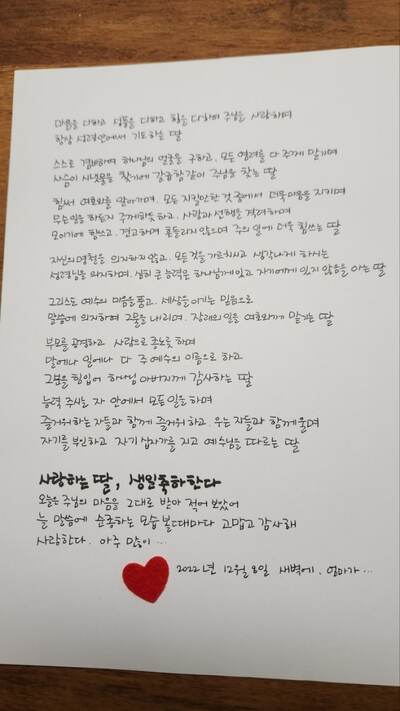 마음을 다하고 성품을 다하고 힘을 다하여 주님을 사랑하며
항상 성령안에서 기도하는 딸
스스로 겸비하여 하나님의 얼굴을 구하고, 모든 염려를 다 주께 맡기며
사슴이 시냇물을 찾기에 갈급함같이 주님을 찾는 딸
힘써 여호와를 알아가며, 모든 지킬만한 것 중에서 더욱 마음을 지키며
무슨일을 하든지 주께하듯하고, 사랑과 선행을 격려하며
모이기에 힘쓰고, 견고하며 흔들리지 않으며 주의 일에 더욱 힘쓰는 딸
자신의 명철을 의지하지 않고, 모든것을 가르치시고 생각나게 하시는
성령님을 의지하며, 심히 큰 능력은 하나님께 있고 자기에게 있지 않음을 아는 딸
그리스도 예수의 마음을 품고, 세상을 이기는 믿음으로
말씀에 의지하여 그물을 내리며, 장래의 일을 여호와께 맡기는 딸
부모를 공경하고 사랑으로 종노릇 하며
말에나 일에나 다 주 예수의 이름으로 하고
그분을 힘입어 하나님 아버지께 감사하는 딸
능력 주시는 자 안에서 모든 일을 하며
즐거워하는 자들과 함께 즐거워 하고, 우는 자들과 함께 울며
자기를 부인하고 자기 십자가를 지고 예수님을 따르는 딸
사랑하는 딸, 생일축하한다
오늘은 주님의 마음을 그대로 받아 적어 보았어
늘 말씀에 순종하는 모습 볼때마다 고맙고 감사해
사랑한다. 아주 많이 ...
2022년 12월 8일 새벽에, 엄마가 ...